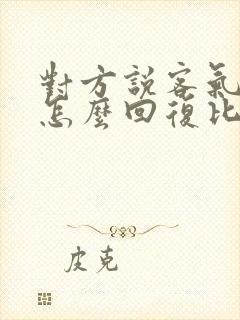 對方說客氣
怎麼回復比
皮克